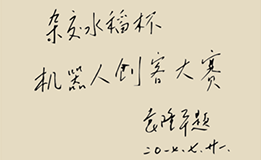 杂交水稻杯
机器人创客大赛
袁隆平题
二0一七.七.廿一.